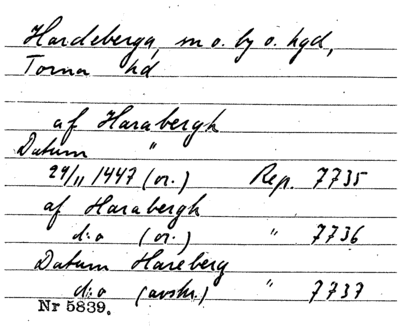 Hardeberga, sn o. by o. hgd,
Torna hd
af Harabergh
Datum "
29/11 1447 (or.) Rep. 7735
af Harabergh
d:o (or.) " 7736
Datum Hareberg
d:o (avskr.) " 7737
Nr 5839.